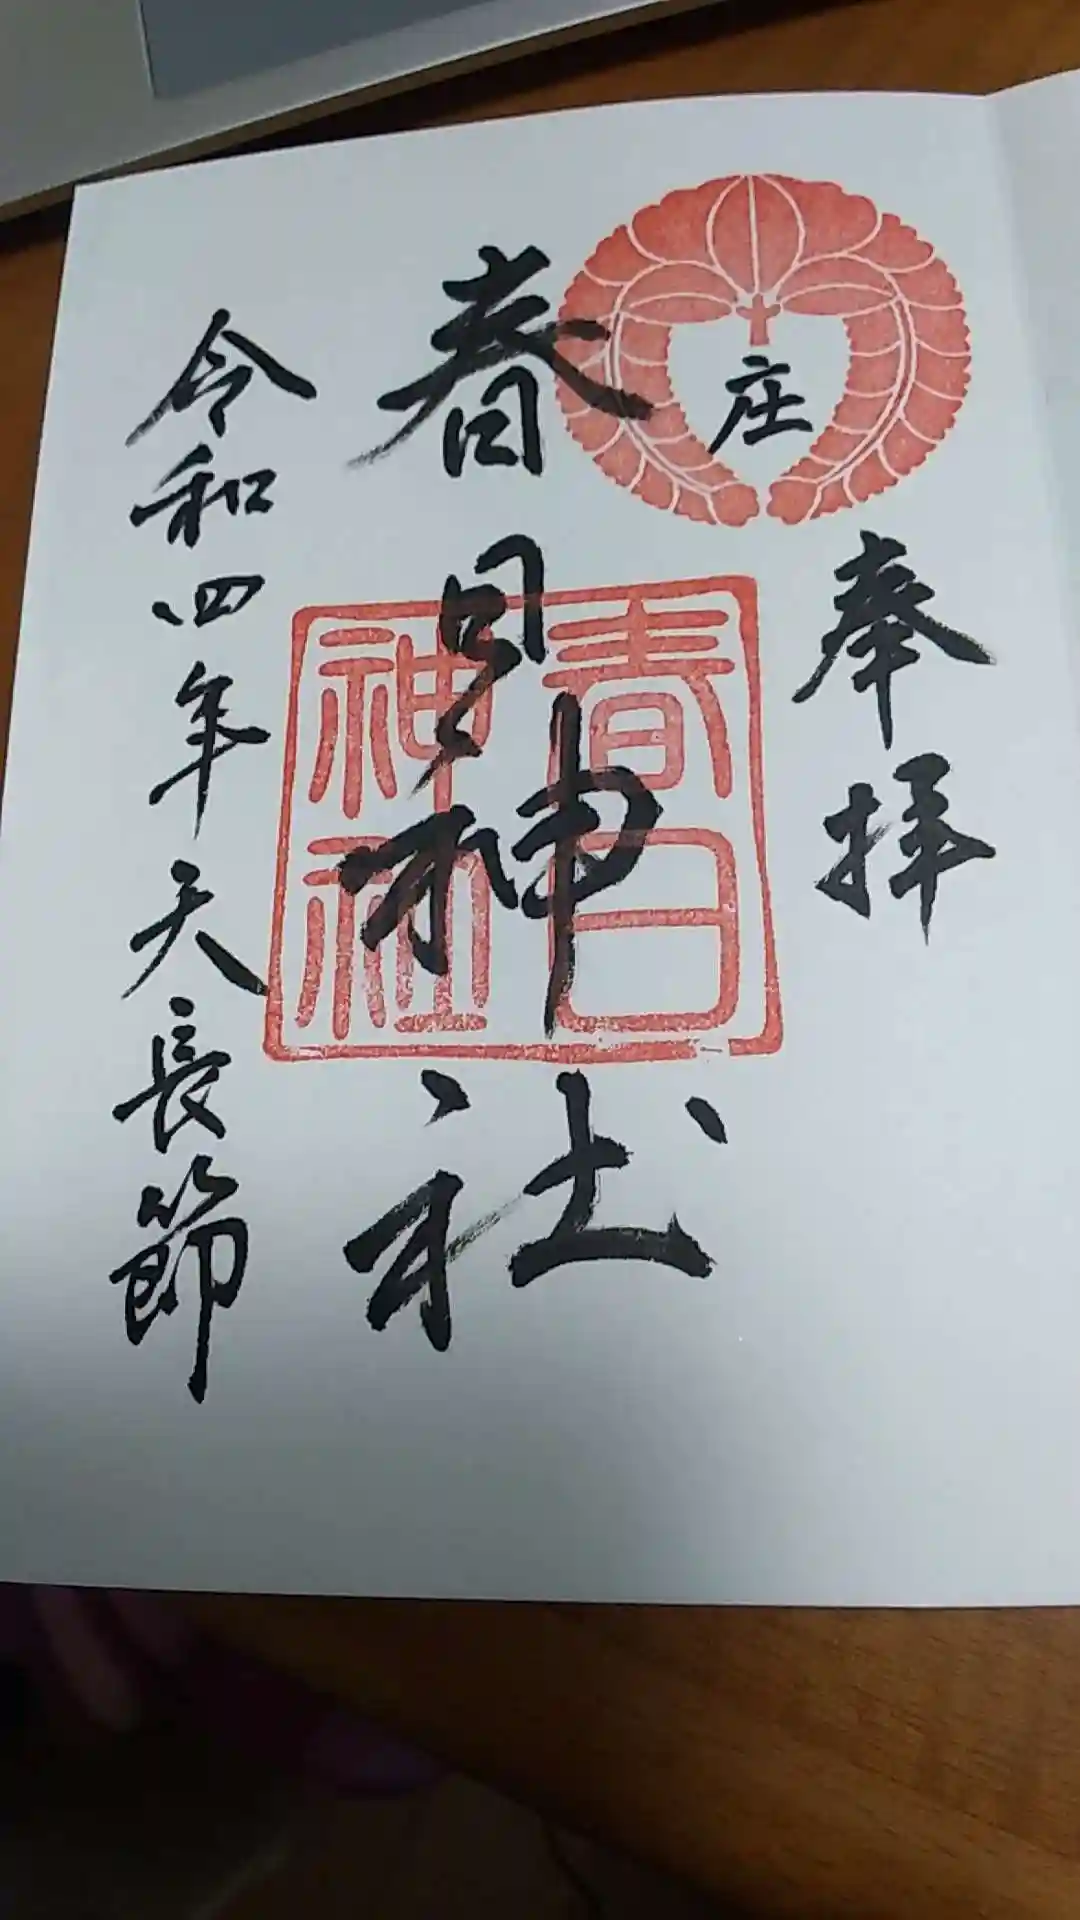 庄
奉拝
春日神社
春日
神社
令和四年天長節